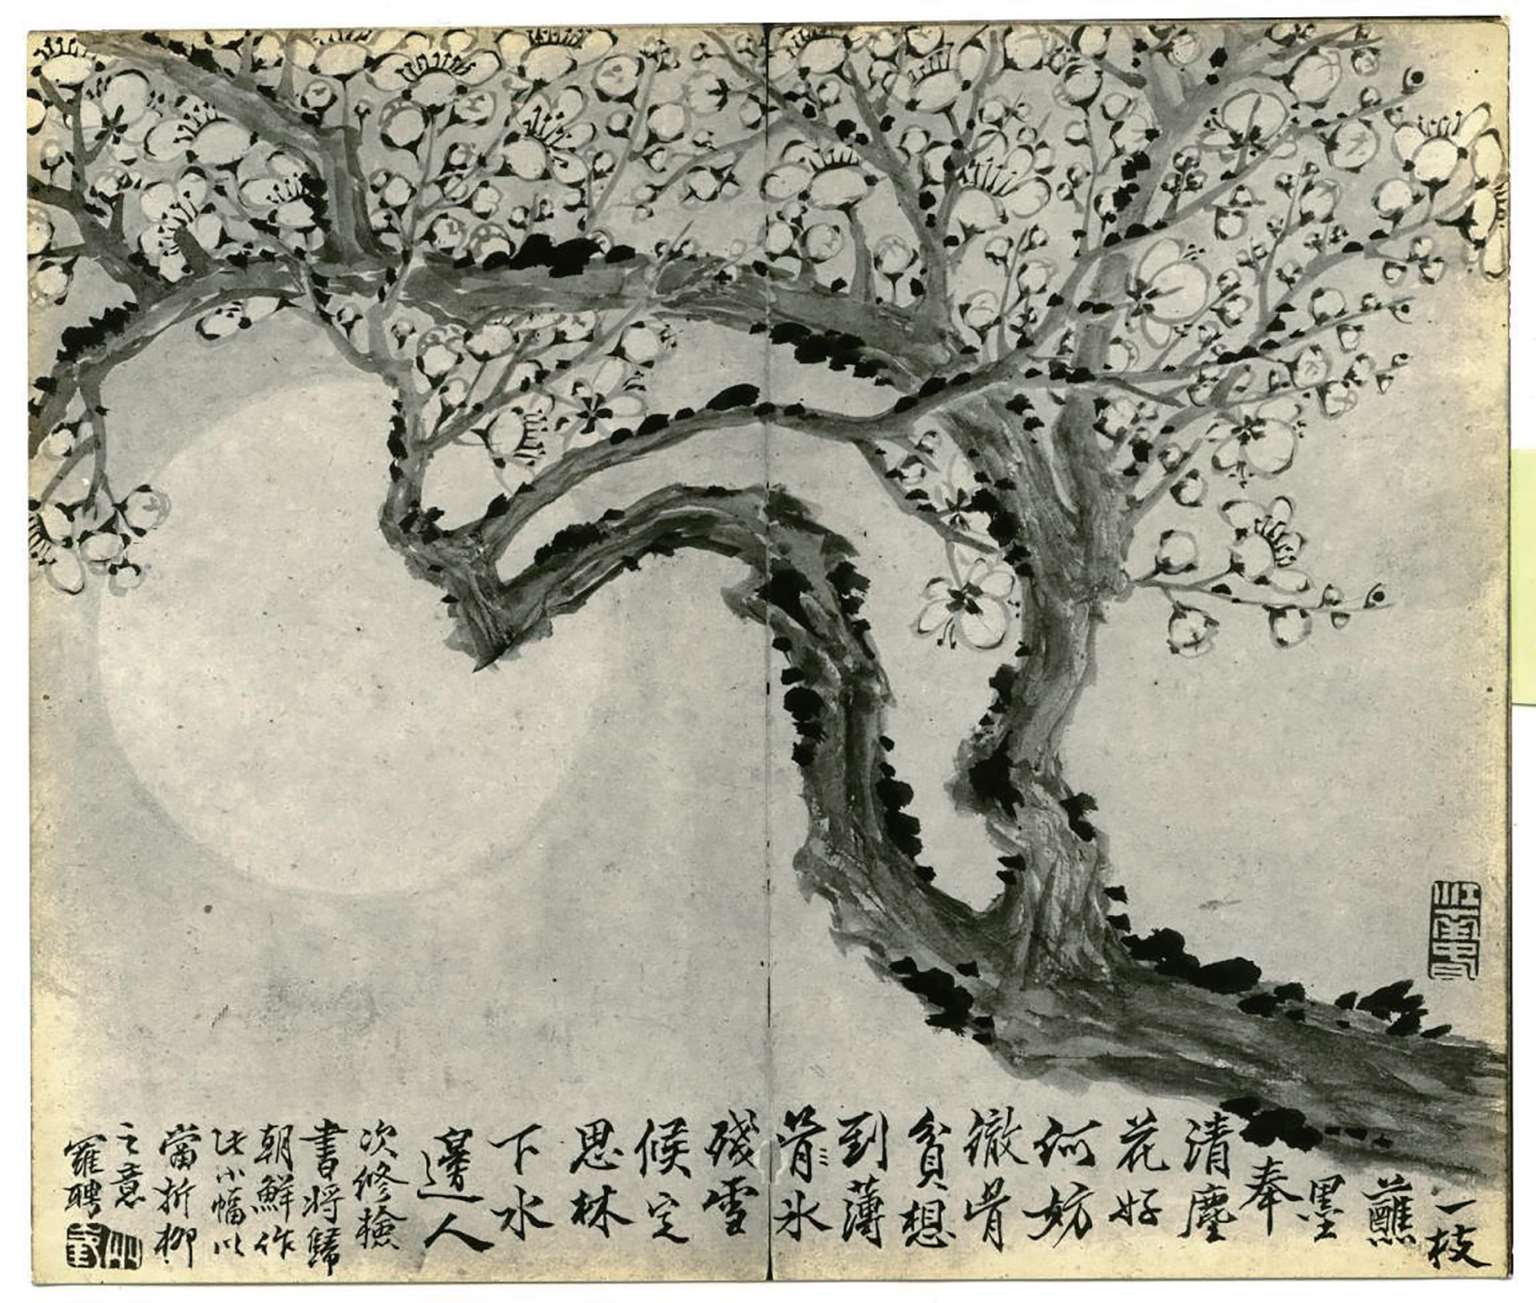 一枝
蘸
墨
奉
清塵
花好
何妨
徹骨
貧想
到薄
氷
殘雪
候定
思林
下水
邊人
次修檢
書將歸
朝鮮作
此小幅以
當折柳
之意
羅聘